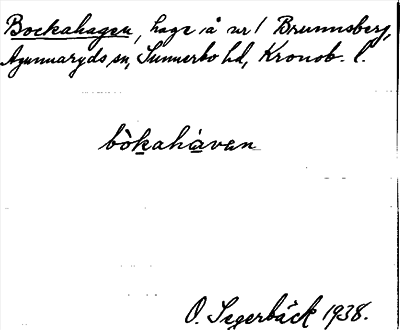 Bockahagen, hage å nr 1 Brunnsberg,
Agunnaryds sn, Sunnerbo hd, Kronob. l.
bòkahàvan
O. Segerbäck 1938.